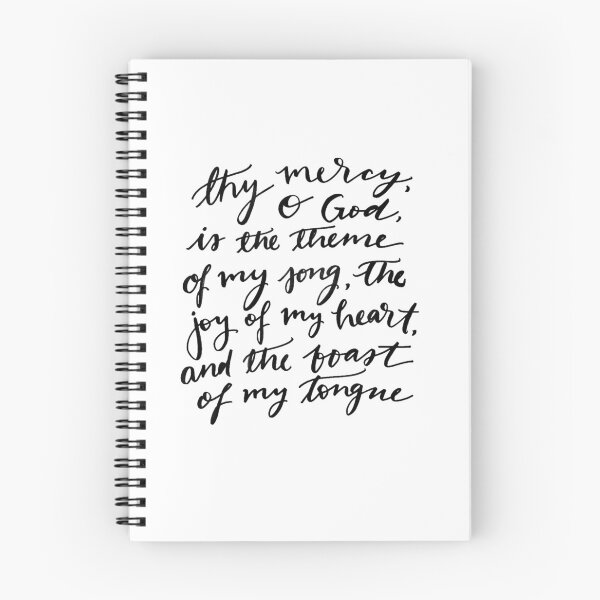 thy mercy,
O God,
is the theme
of my song, the
joy of my heart,
and the boast
of my tongue